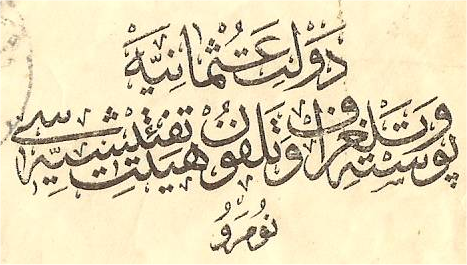 دَوْلَتِ عُثْمَانِيَّه
پوسته وتلغراف وتلفون هيئت تفتيشيه سى
نُومَرُو